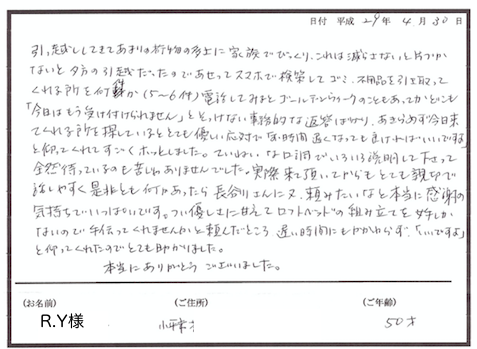 日付 平成 29年 4月 30日
引っ越ししてきてあまりの荷物の多さに家族でびっくり、これは減らさないと片づか
ないと夕方の引越だったのであせってスマホで検索してゴミ、不用品を引き取って
くれる所を何件か(5〜6件)電話してみるとゴールデンウィークのこともあってかどこも
「今日はもう受け付けられません」とそっけない事務的な返答ばかり、あきらめず今日来
てくれる所を探しているととても優しい応対で「夜の時間 遅くなっても良ければいいですよ」
と仰ってくれてすごくホッとしました。ていねいな口調でいろいろ説明して下さって
全然待っているのも苦じゃありませんでした。実際来て頂いてからもとても親切で
話しやすく是非とも何かあったら長谷川さんに又、頼みたいなと本当に感謝の
気持ちでいっぱいです。つい優しさに甘えてロフトベッドの組み立てを女手しか
ないので手伝ってくれませんかと頼んだところ 遅い時間にもかかわらず、「いいですよ」
と仰ってくれたのでとても助かりました。
本当にありがとうございました。
(お名前) (ご住所) (ご年齢)
R.Y様 小平市 50才